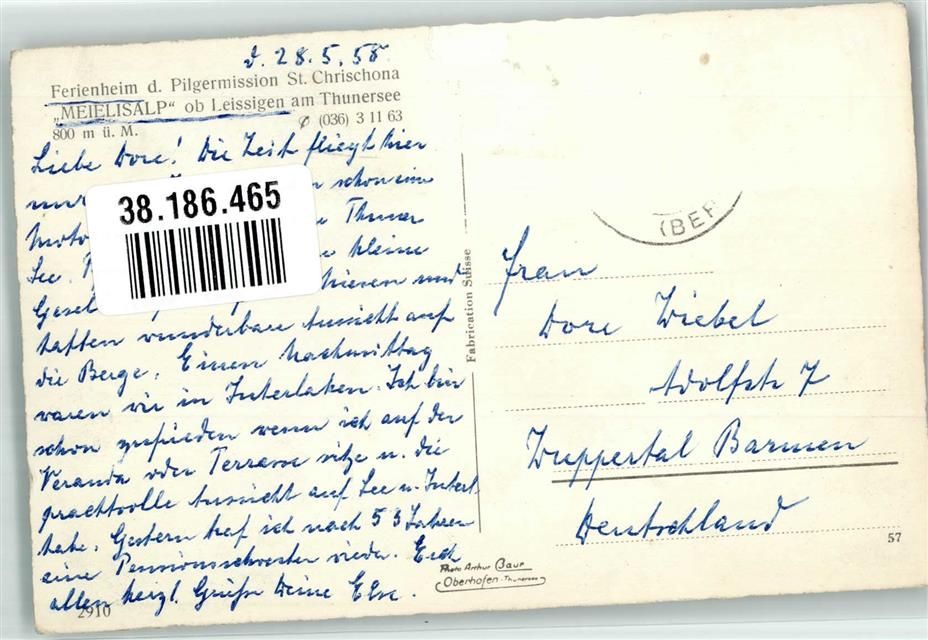 d. 28.5.58
Ferienheim d. Pilgermission St. Chrischona
„MEIELISALP“ ob Leissigen am Thunersee
800 m ü. M. (036) 3 11 63
Liebe Dore! Die Zeit fliegt hier
nur schon eine
Moto Thuner
See. kleine
Gesel und
hatten wunderbare Aussicht auf
die Berge. Einen Nachmittag
waren wir in Interlaken. Ich bin
schon zufrieden wenn ich auf der
Veranda oder Terrasse sitze u. die
prachtvolle Aussicht auf See u. Interl.
habe. Gestern traf ich nach 53 Jahren
eine Pensionsschwester wieder. Euch
allen herzl. Grüße Deine Else.
2910
38.186.465
Fabrication Suisse
Photo Arthur Baur
Oberhofen-Thunersee
(BER
Frau
Dore Wiebel
Adolfstr 7
Wuppertal Barmen
Deutschland
57